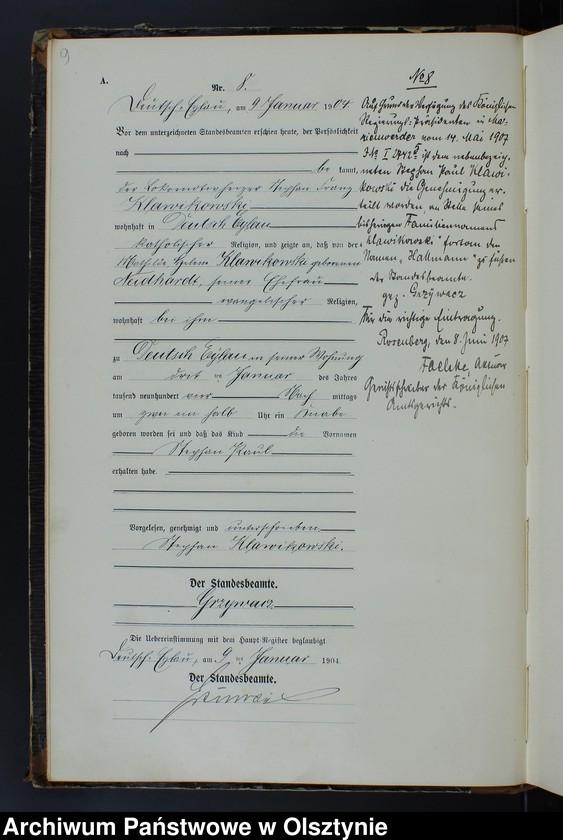 9
A.
Nr. 8.
Deutsch-Eylau, am 9 Januar 1904.
Vor dem unterzeichneten Standesbeamten erschien heute, der Persönlichkeit
nach
be kannt,
der Lokomotivheizer Stephan Franz
Klawikowski
wohnhaft in Deutsch Eylau
katholischer Religion, und zeigte an, daß von der
Mathilde Helene Klawikowski geborenen
Neidhardt, seiner Ehefrau
evangelischer Religion,
wohnhaft bei ihm
zu Deutsch Eylau in seiner Wohnung
am drei ten Januar des Jahres
tausend neunhundert vier Nach mittags
um zwei ein halb Uhr ein Knabe
geboren worden sei und daß das Kind die Vornamen
Stephan Paul
erhalten habe.
Vorgelesen, genehmigt und unterschrieben
Stephan Klawikowski.
Der Standesbeamte.
Grzywacz
Die Uebereinstimmung mit dem Haupt-Register beglaubigt
Deutsch-Eylau, am 9 ten Januar 1904.
Der Standesbeamte.
No 8
Auf Grund der Verfügung des Königlichen
Regierungs-Präsidenten in Ma-
rienwerder vom 14. Mai 1907
ist dem nebenbezeich-
neten Stephan Paul Klawi-
kowski die Genehmigung er-
teilt worden, an Stelle seines
bisherigen Familiennamens
"Klawikowski" fortan den
Namen "Hallmann" zu führen
der Standesbeamte.
gez. Grzywacz
Für die richtige Eintragung.
Rosenberg, den 8. Juni 1907
Aktuar
Gerichtsschreiber der Königlichen
Amtsgerichts.
Archiwum Państwowe w Olsztynie